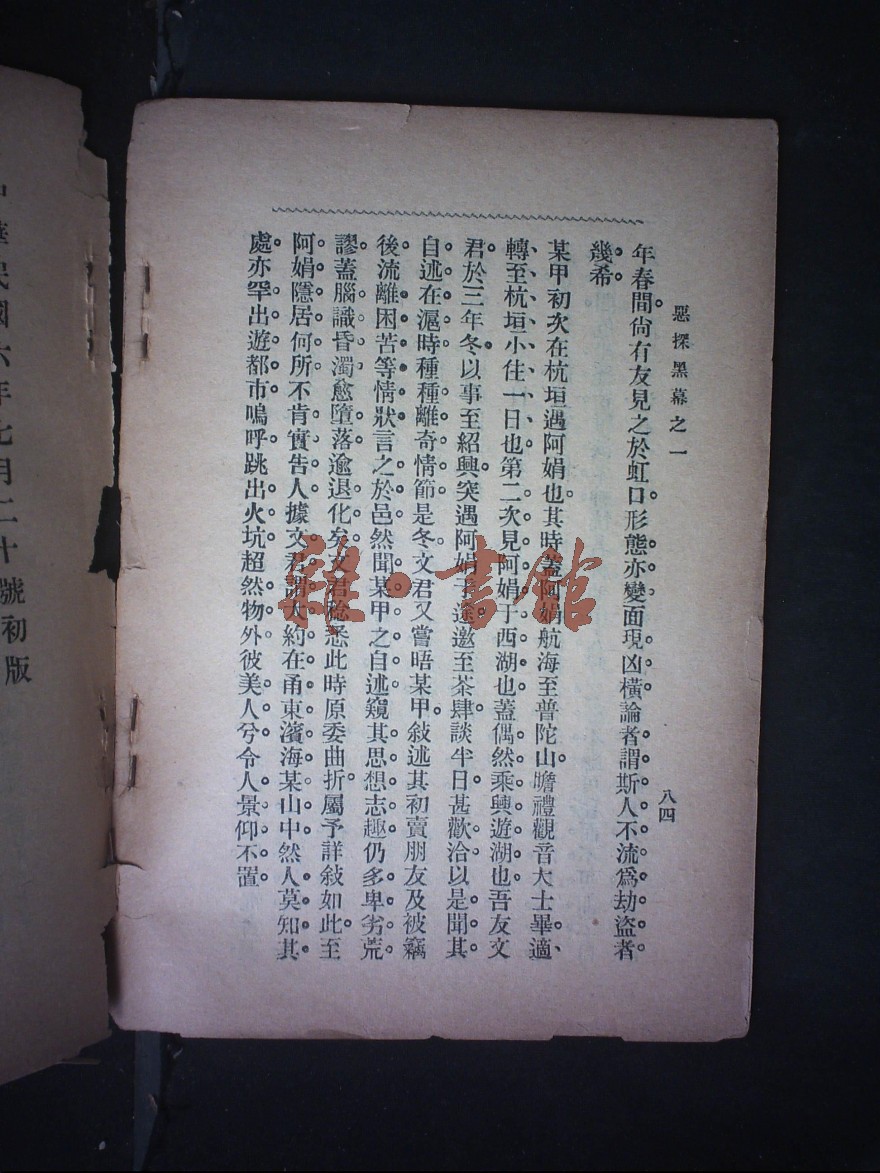 惡探黑幕之一
八四
年春間尙有友見之於虹口形態亦變面現凶橫論者謂斯人不流爲劫盜者
幾希
某甲初次在杭垣遇阿娟也其時蓋阿娟航海至普陀山瞻禮觀音大士畢適
轉至杭垣小住一日也第二次見阿娟于西湖也蓋偶然乘興遊湖也吾友文
君於三年冬以事至紹興突遇阿娟于途邀至茶肆談半日甚歡洽以是聞其
自述在滬時種種離奇情節是冬文君又嘗晤某甲敍述其初賣朋友及被竊
後流離困苦等情狀言之於邑然聞某甲之自述窺其思想志趣仍多卑劣荒
謬蓋腦識昏濁愈墮落逾退化矣文君稔悉此時原委曲折屬予詳敍如此至
阿娟隱居何所不肯實告人據文君謂大約在甬東濱海某山中然人莫知其
處亦罕出遊都市嗚呼跳出火坑超然物外彼美人兮令人景仰不置
中華民國六年七月二十號初版
雜·書館